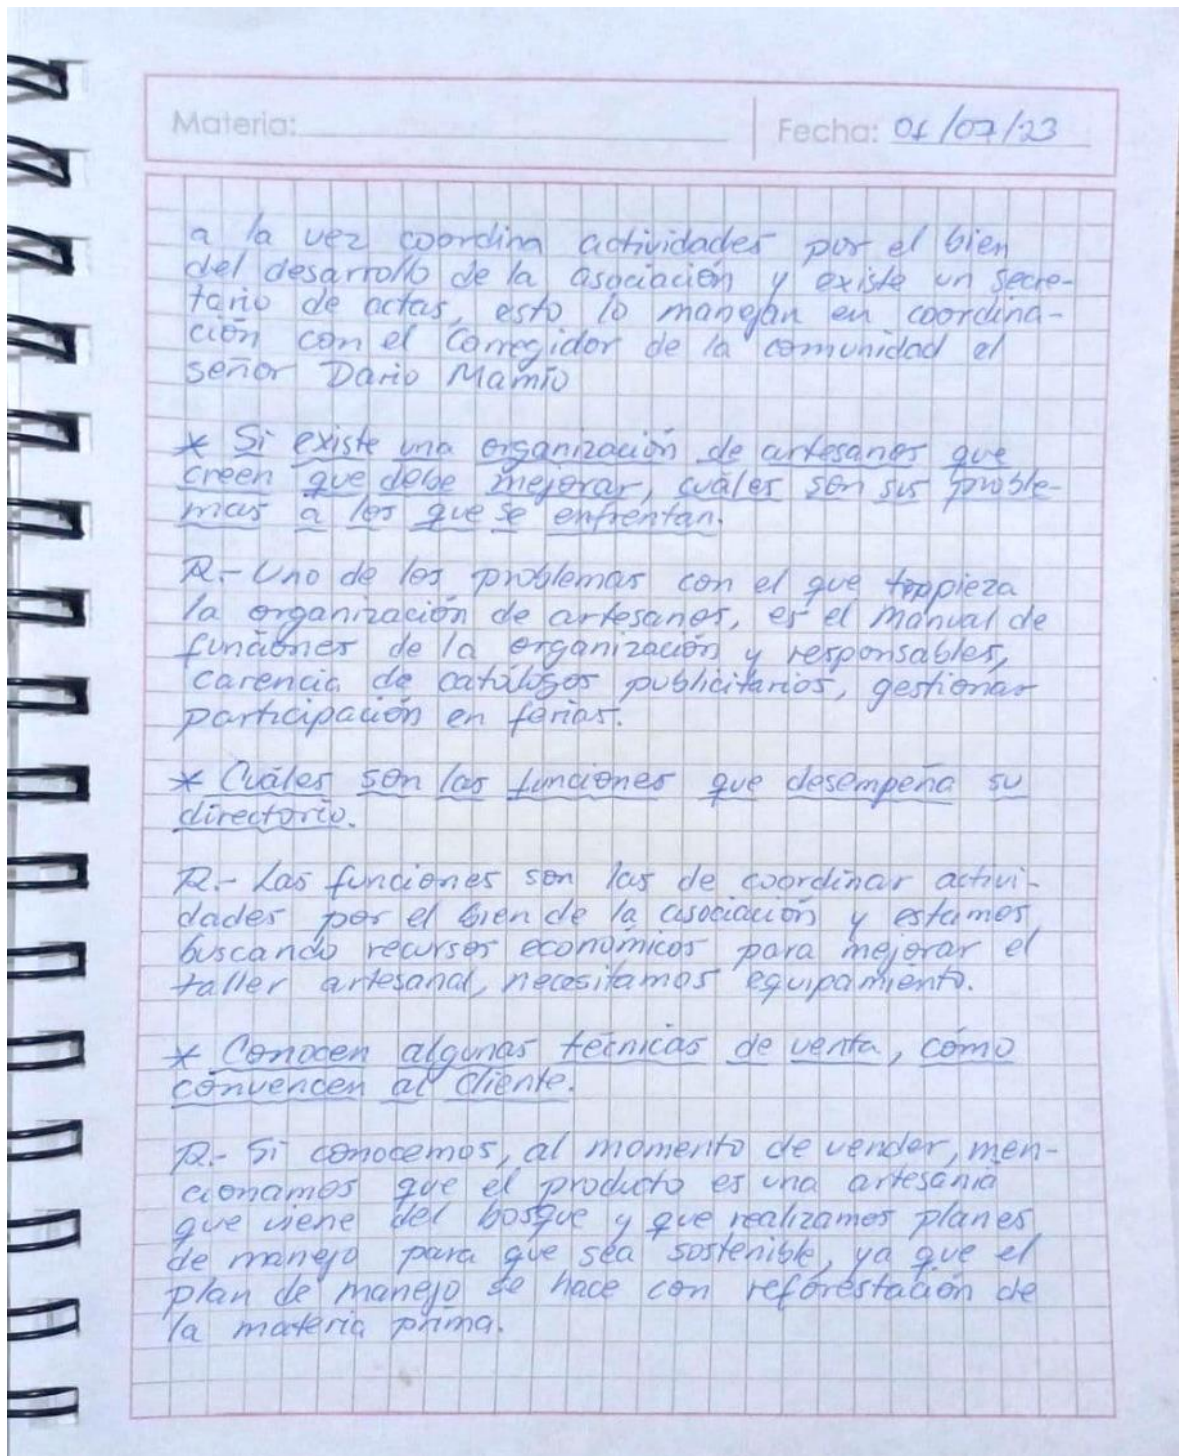 Materia:
Fecha: 01/07/23
a la vez coordina actividades por el bien
del desarrollo de la asociación y existe un secre-
tario de actas, esto lo manejan en coordina-
ción con el Corregidor de la comunidad el
señor Dario Mamio
* Si existe una organización de artesanos que
creen que debe mejorar, cuáles son sus proble-
mas a los que se enfrentan.
R.- Uno de los problemas con el que troppieza
la organización de artesanos, es el manual de
funciones de la organización y responsables,
carencia de catálogos publicitarios, gestionar
participación en ferias.
* Cuáles son las funciones que desempeña su
directorio.
R.- Las funciones son las de coordinar activi-
dades por el bien de la asociación y estamos
buscando recursos económicos para mejorar el
taller artesanal, necesitamos equipamiento.
* Conocen algunas técnicas de venta, cómo
convencen al cliente.
R.- Si conocemos, al momento de vender, men-
cionamos que el producto es una artesania
que viene del bosque y que realizamos planes
de manejo para que sea sostenible, ya que el
plan de manejo se hace con reforestación de
la materia prima.